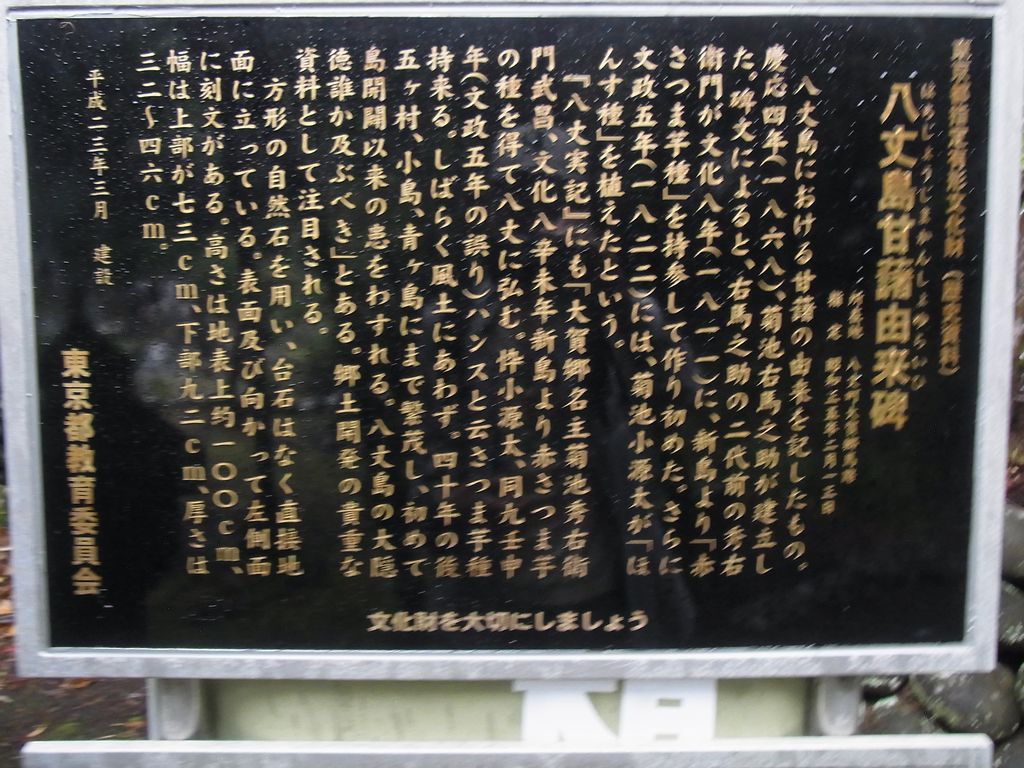 東京都指定有形文化財（歴史資料）
はちじょうじまかんしょゆらいひ
八丈島甘藷由来碑
所在地　八丈町大賀郷馬路
指　定　昭和三五年二月一三日
　八丈島における甘藷の由来を記したもの。
慶応四年（一八六八）、菊池右馬之助が建立し
た。碑文によると、右馬之助の二代前の秀右
衛門が文化八年（一八一一）に、新島より「赤
さつま芋種」を持参して作り初めた。さらに
文政五年（一八二二）には、菊池小源太が「は
んす種」を植えたという。
　『八丈実記』にも「大賀郷名主菊池秀右衛
門武昌、文化八辛未年新島より赤さつま芋
の種を得て八丈に弘む。忰小源太、同九壬申
年（文政五年の誤り）ハンスと云さつま芋種
持来る。しばらく風土にあわず。四十年の後
五ヶ村、小島、青ヶ島にまで繁茂し、初めて
島開闢以来の患をわすれる。八丈島の大隠
徳誰か及ぶべき」とある。郷土開発の貴重な
資料として注目される。
　方形の自然石を用い、台石はなく直接地
面に立っている。表面及び向かって左側面
に刻文がある。高さは地表上約一〇〇cm、
幅は上部が七三cm、下部九二cm、厚さは
三二～四六cm。
平成二三年三月　建設
東京都教育委員会
文化財を大切にしましょう